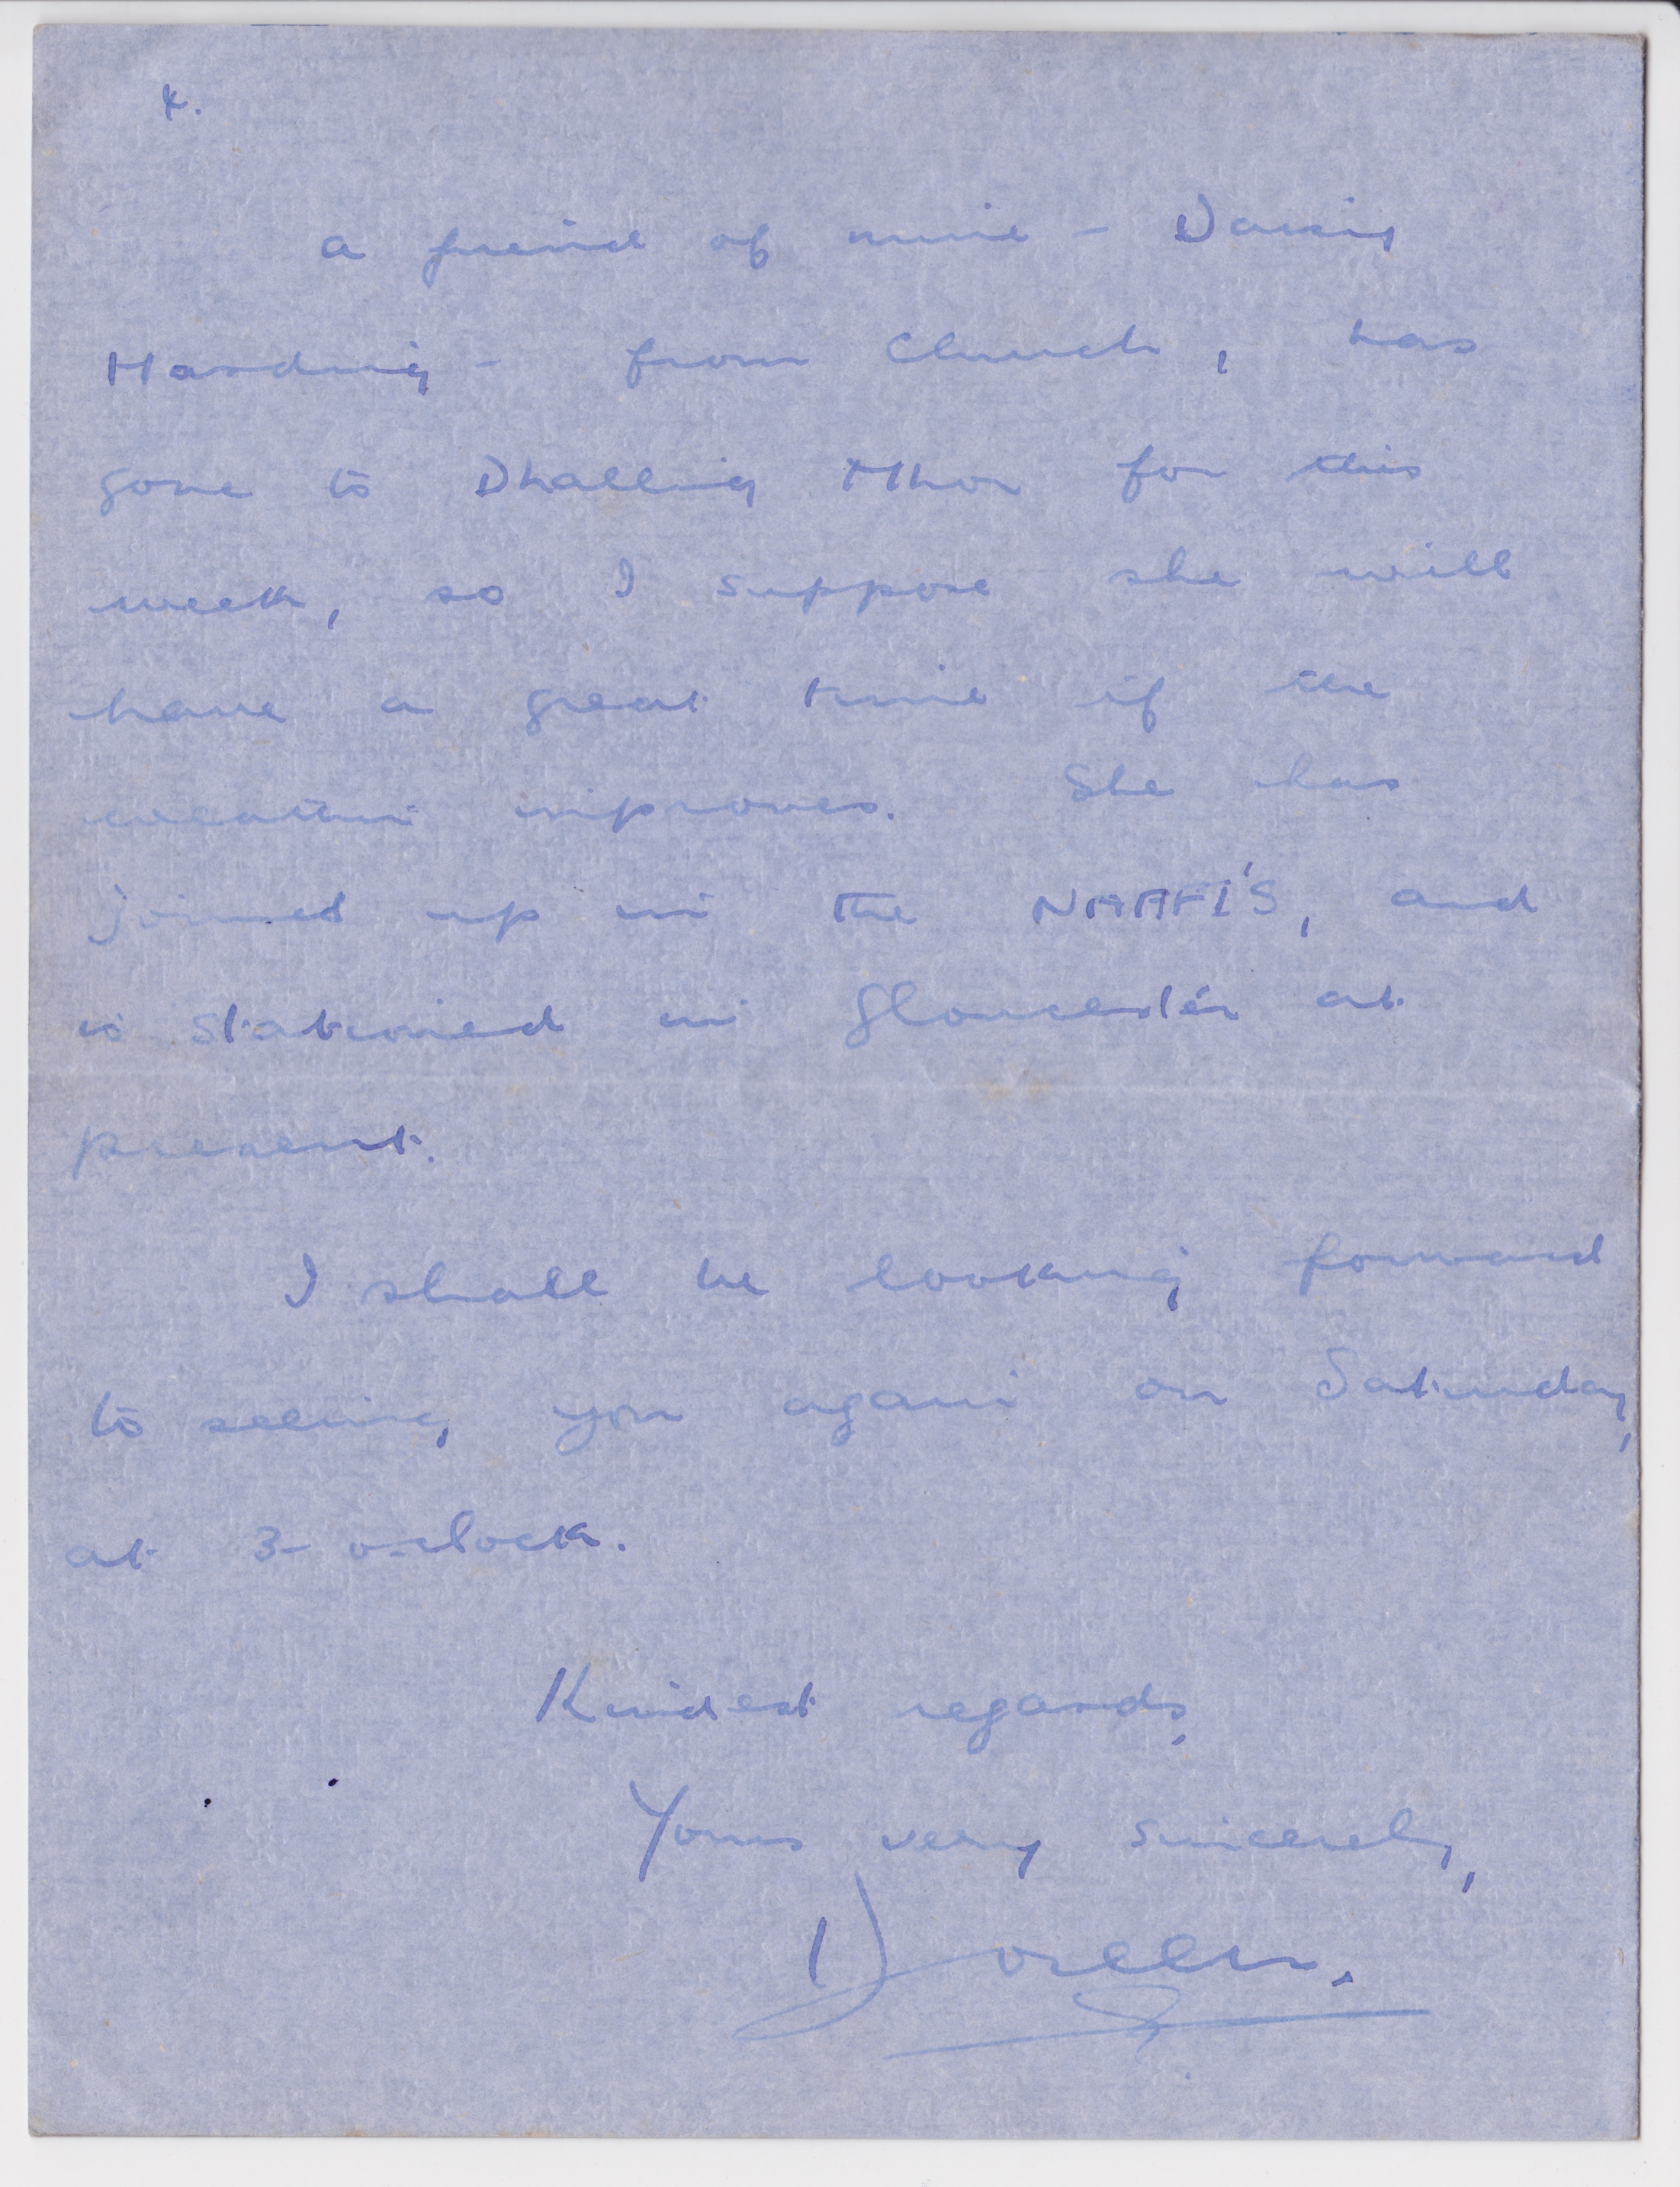 4.
a friend of mine - Daisy
Harding - from Church, has
gone to Dhalling Mhor for this
week, so I suppose she will
have a great time if the
weather improves. She has
joined up in the NAAFI'S, and
is stationed in Gloucester at
present.
I shall be looking forward
to seeing you again on Saturday,
at 3-o-clock.
Kindest regards,
Yours very sincerely,
Doreen.